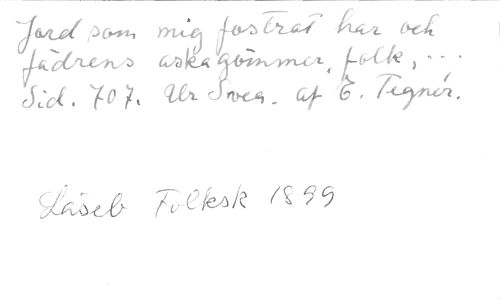 Jord som mig fostrat har och
fädrens aska gömmer, folk, ...
Sid. 707. Ur Svea. af E. Tegnér.
Läseb Folksk 1899